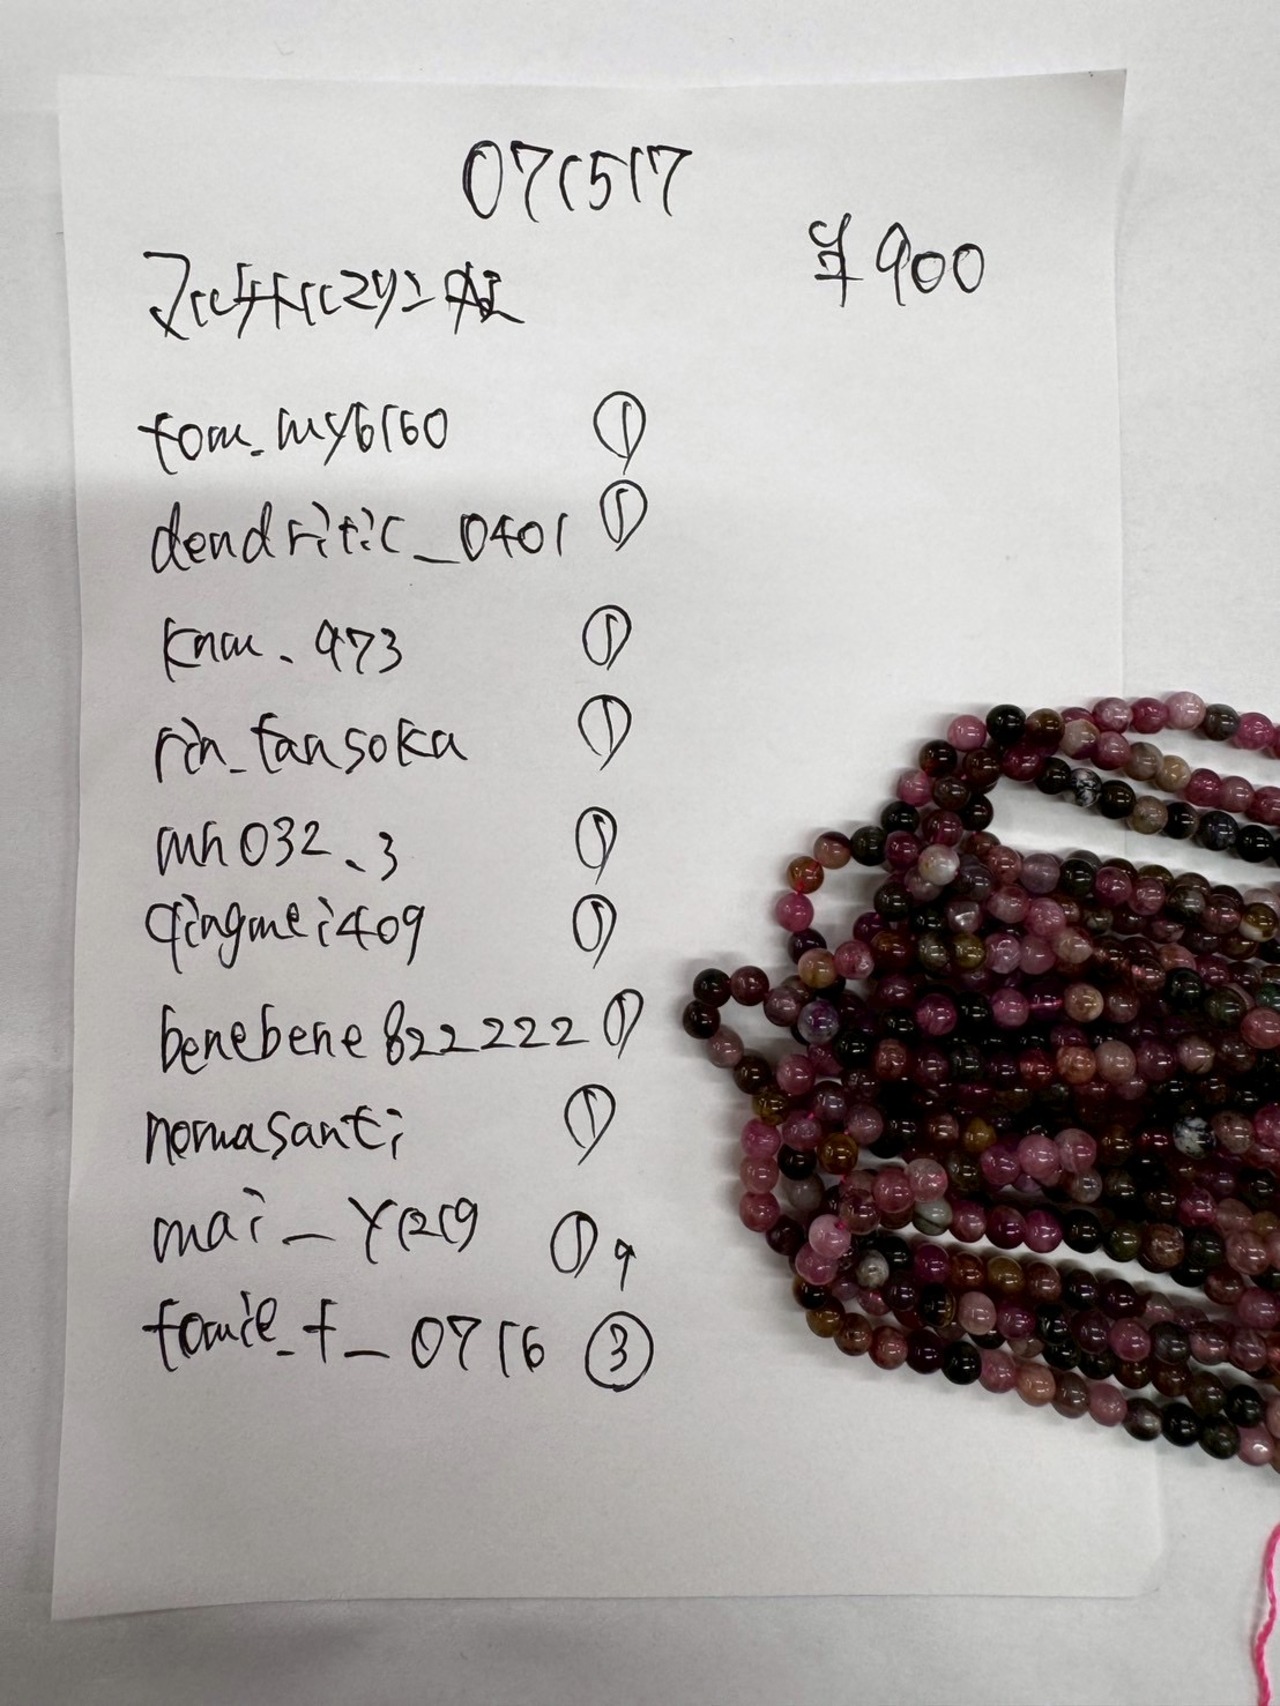 071517
マルチトルマリン
¥900
tom_my6160 ①
dendritic_0401 ①
knm.973 ①
rin_tansoka ①
mh032.3 ①
qingmei409 ①
benebene822222 ①
nomasanti ①
mai_y1219 ① 9
tomie_t_0716 ③